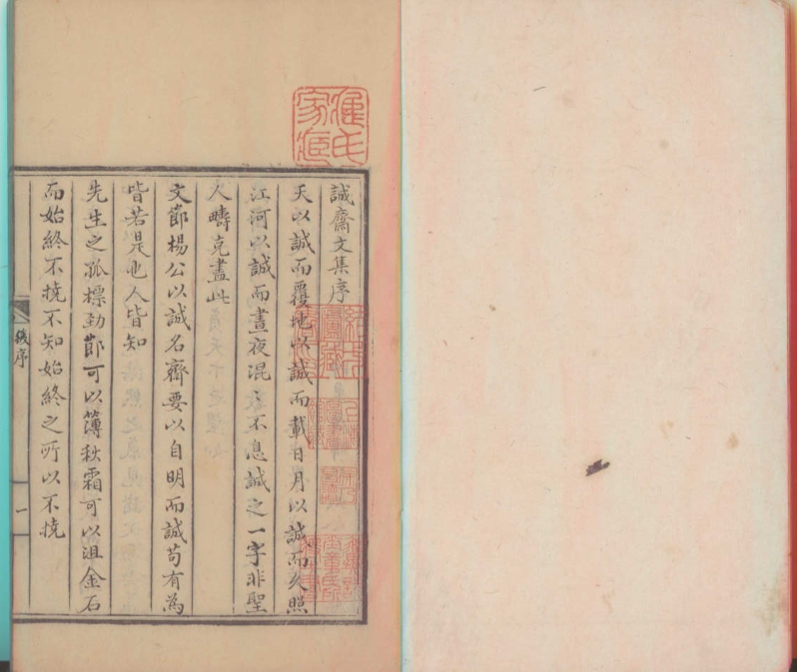 誠齋文集序
天以誠而覆地以誠而載日月以誠而久照
江河以誠而晝夜混混不息誠之一字非聖
人疇克盡此
文節楊公以誠名齋要以自明而誠苟有爲
皆若是也人皆知
先生之孤標勁節可以薄秋霜可以沮金石
而始終不撓不知始終之所以不撓
序
一